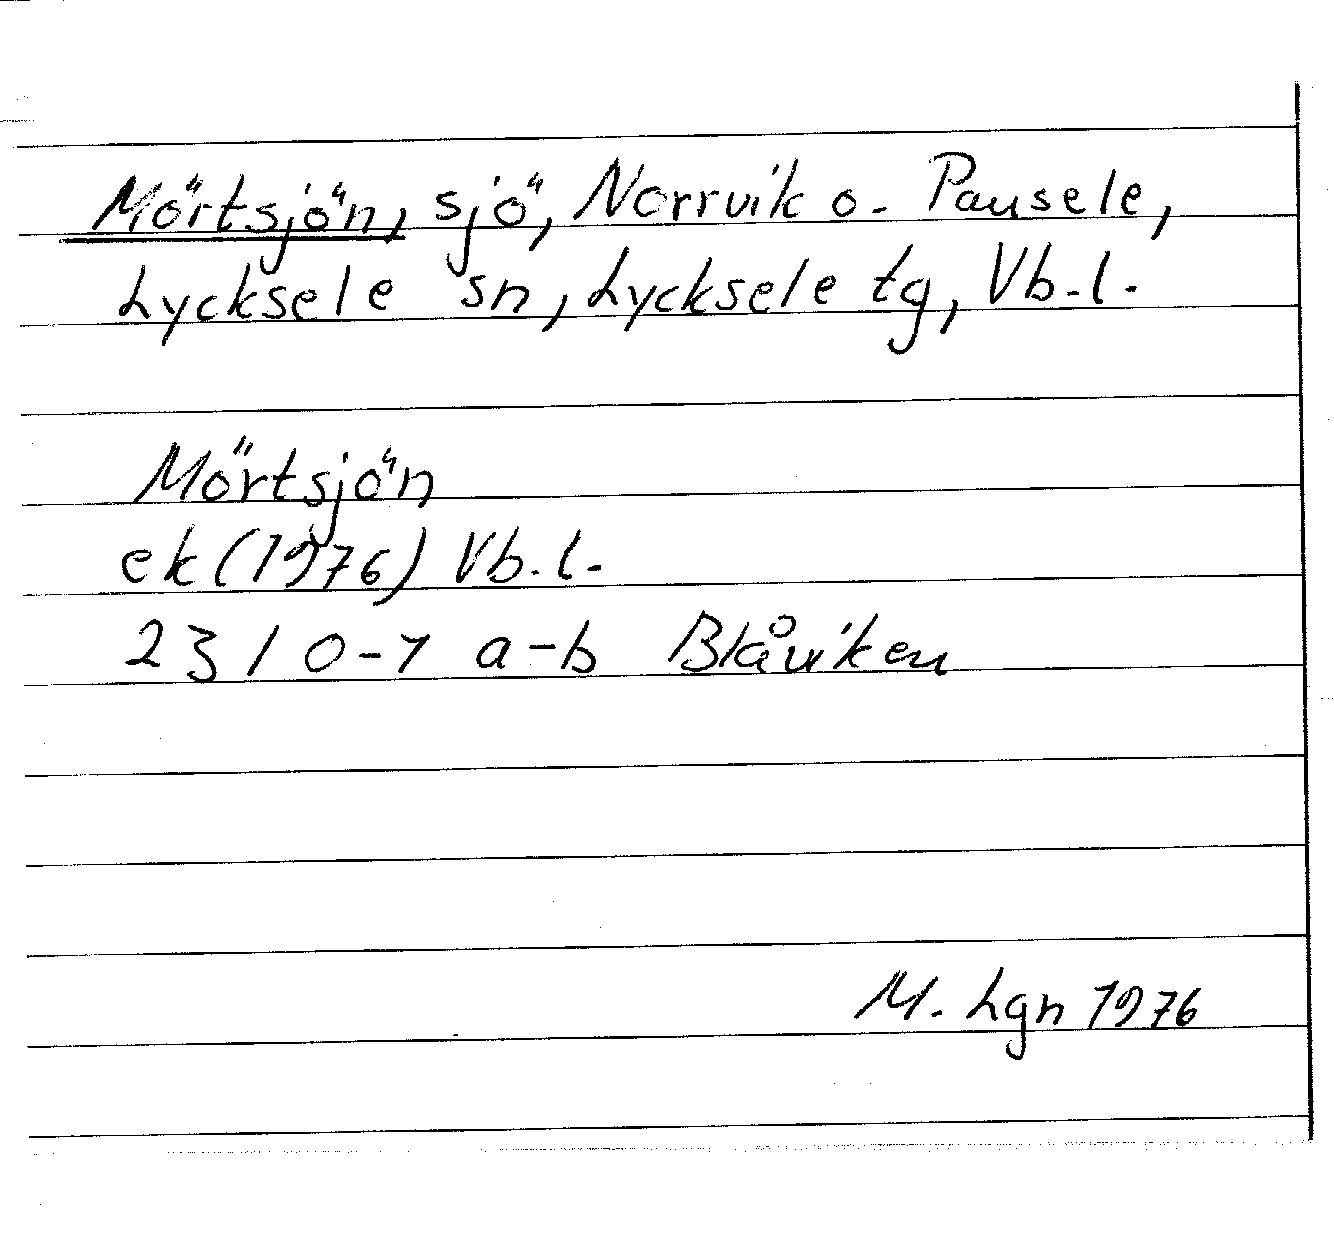 Mörtsjön, sjö, Norrvik o. Pausele,
Lycksele sn, Lycksele tg, Vb.l.
Mörtsjön
ek (1976) Vb.l.
23 I 0-1 a-b Blåviken
M. Lgn 1976